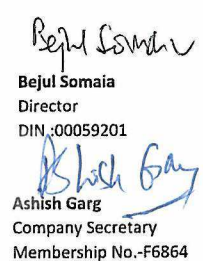 Bejul Somaia
Bejul Somaia
Director
DIN :00059201
Ashish Garg
Ashish Garg
Company Secretary
Membership No.-F6864